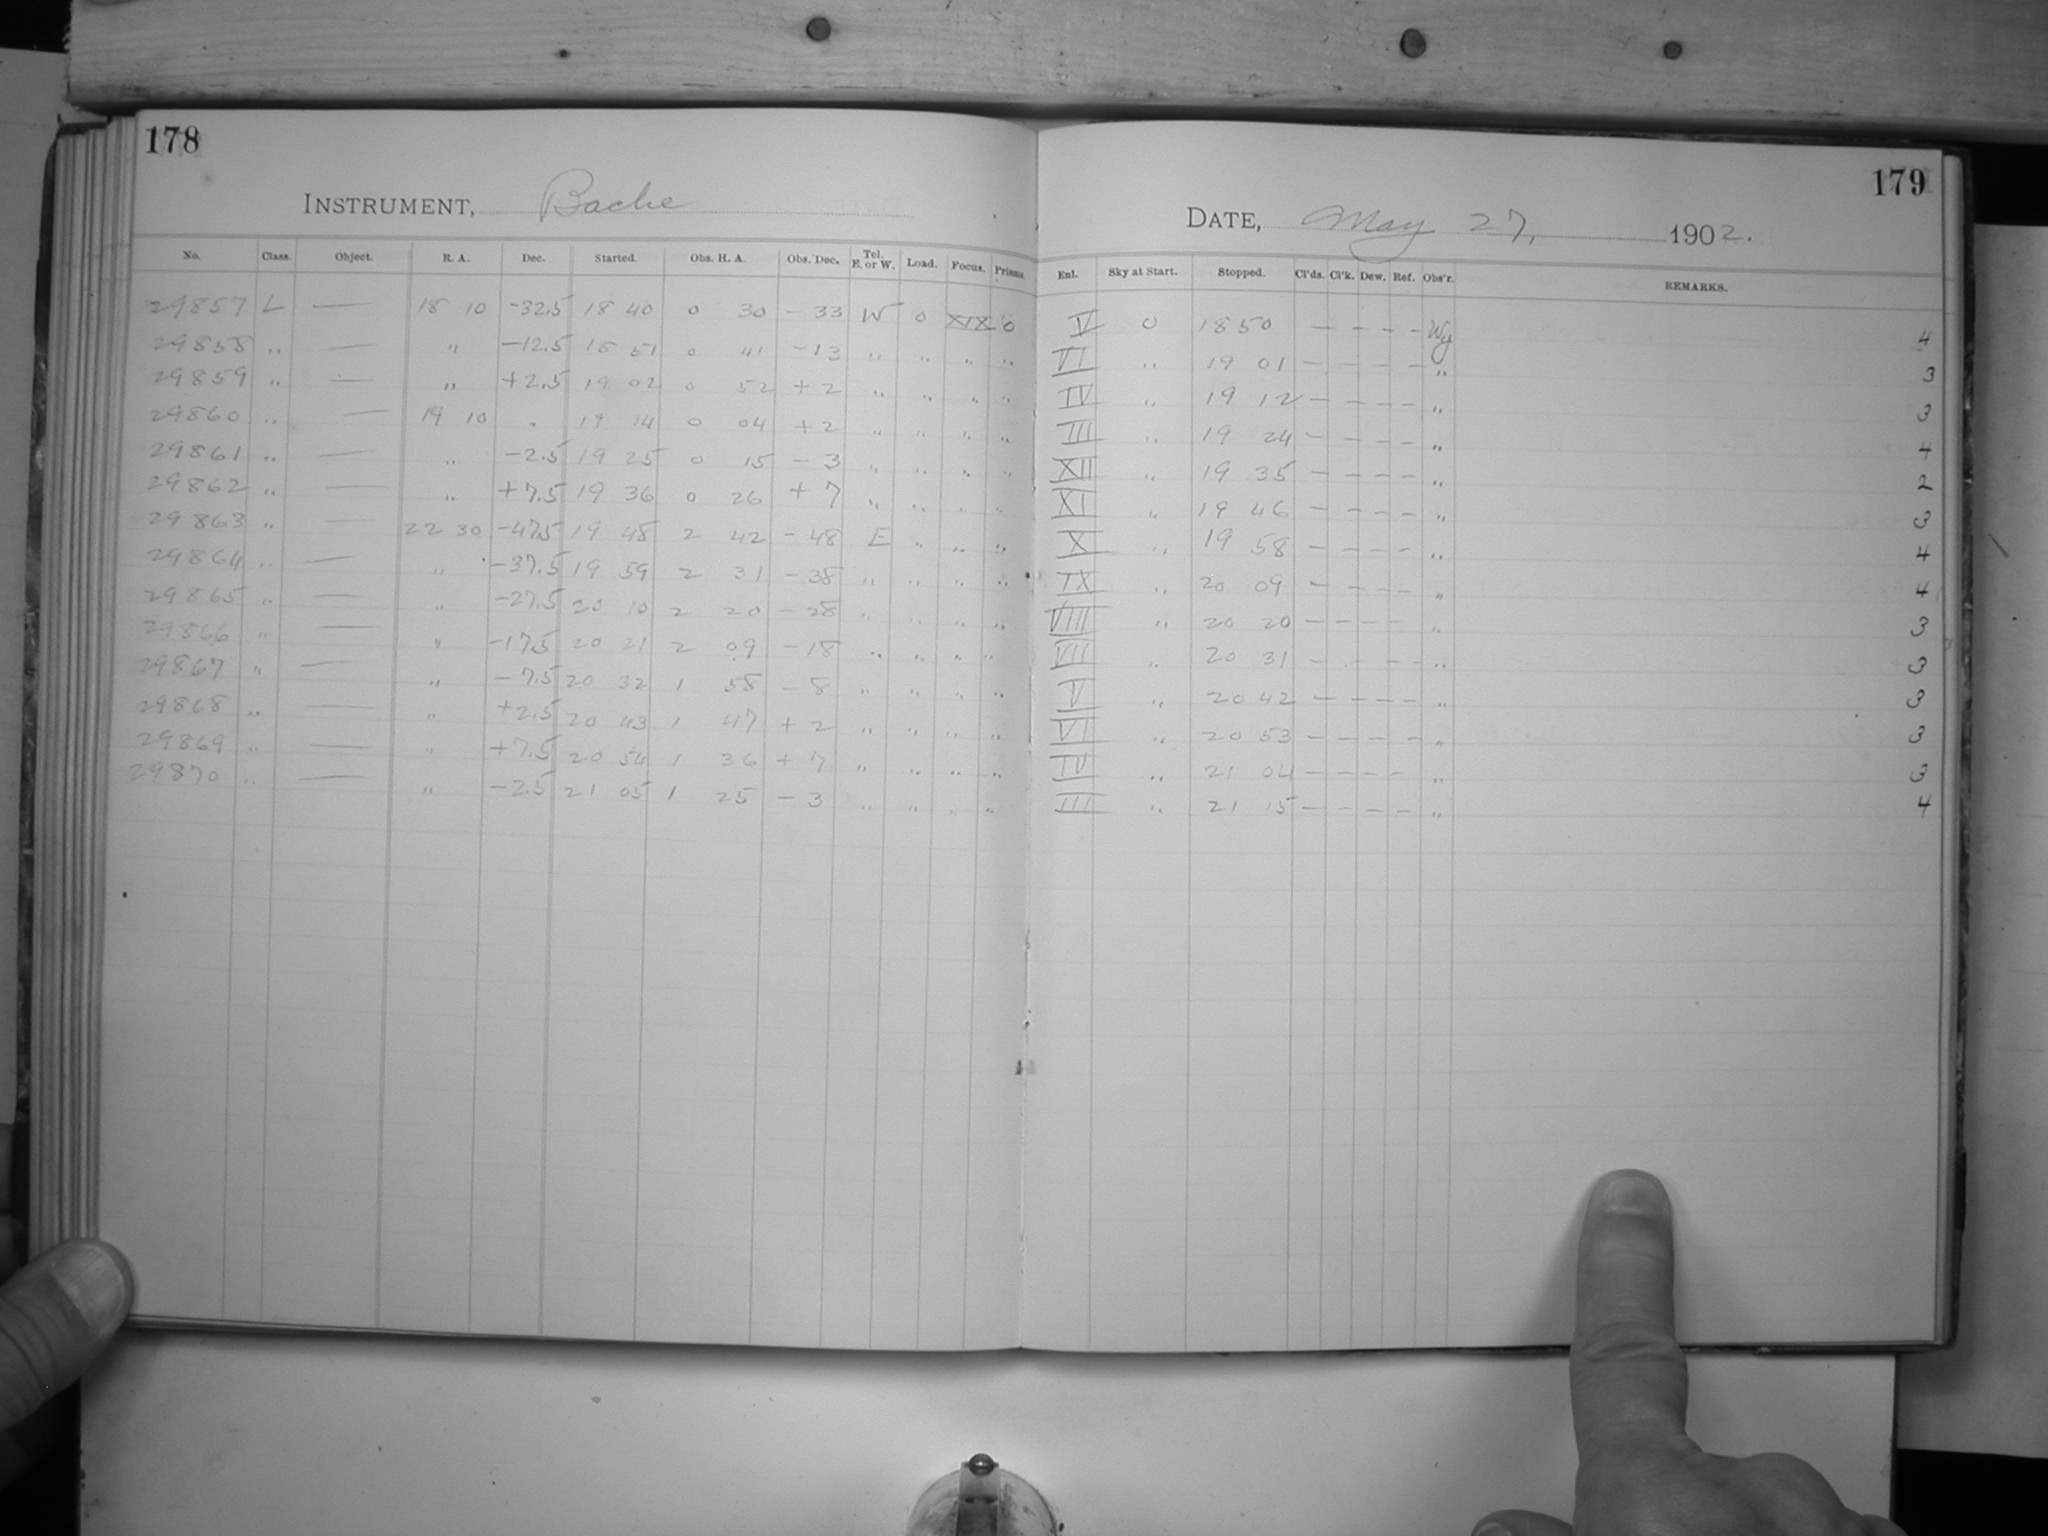 178
INSTRUMENT, Bache
No. Class. Object. R. A. Dec. Started. Obs. H. A. Obs. Dec. Tel. E. or W. Load. Focus. Prisms.
29857 L — 18 10 -32.5 18 40 0 30 - 33 W 0 XIX 0
29858 " — " -12.5 18 51 0 41 - 13 " " " "
29859 " — " +2.5 19 02 0 52 + 2 " " " "
29860 " — 19 10 " 19 14 0 04 + 2 " " " "
29861 " — " -2.5 19 25 0 15 - 3 " " " "
29862 " — " +7.5 19 36 0 26 + 7 " " " "
29863 " — 22 30 -47.5 19 48 2 42 - 48 E " " "
29864 " — " -37.5 19 59 2 31 - 38 " " " "
29865 " — " -27.5 20 10 2 20 - 28 " " " "
29866 " — " -17.5 20 21 2 09 - 18 " " " "
29867 " — " -7.5 20 32 1 58 - 8 " " " "
29868 " — " +2.5 20 43 1 47 + 2 " " " "
29869 " — " +7.5 20 54 1 36 + 7 " " " "
29870 " — " -2.5 21 05 1 25 - 3 " " " "
179
DATE, May 27, 1902.
Enl. Sky at Start. Stopped. Cl'ds. Cl'k. Dew. Ref. Obs'r. REMARKS.
V 0 18 50 — — — — Wy 4
VI " 19 01 — — — — " 3
IV " 19 12 — — — — " 3
III " 19 24 — — — — " 4
XII " 19 35 — — — — " 2
XI " 19 46 — — — — " 3
X " 19 58 — — — — " 4
IX " 20 09 — — — — " 4
VIII " 20 20 — — — — " 3
VII " 20 31 — — — — " 3
V " 20 42 — — — — " 3
VI " 20 53 — — — — " 3
IV " 21 04 — — — — " 3
III " 21 15 — — — — " 4